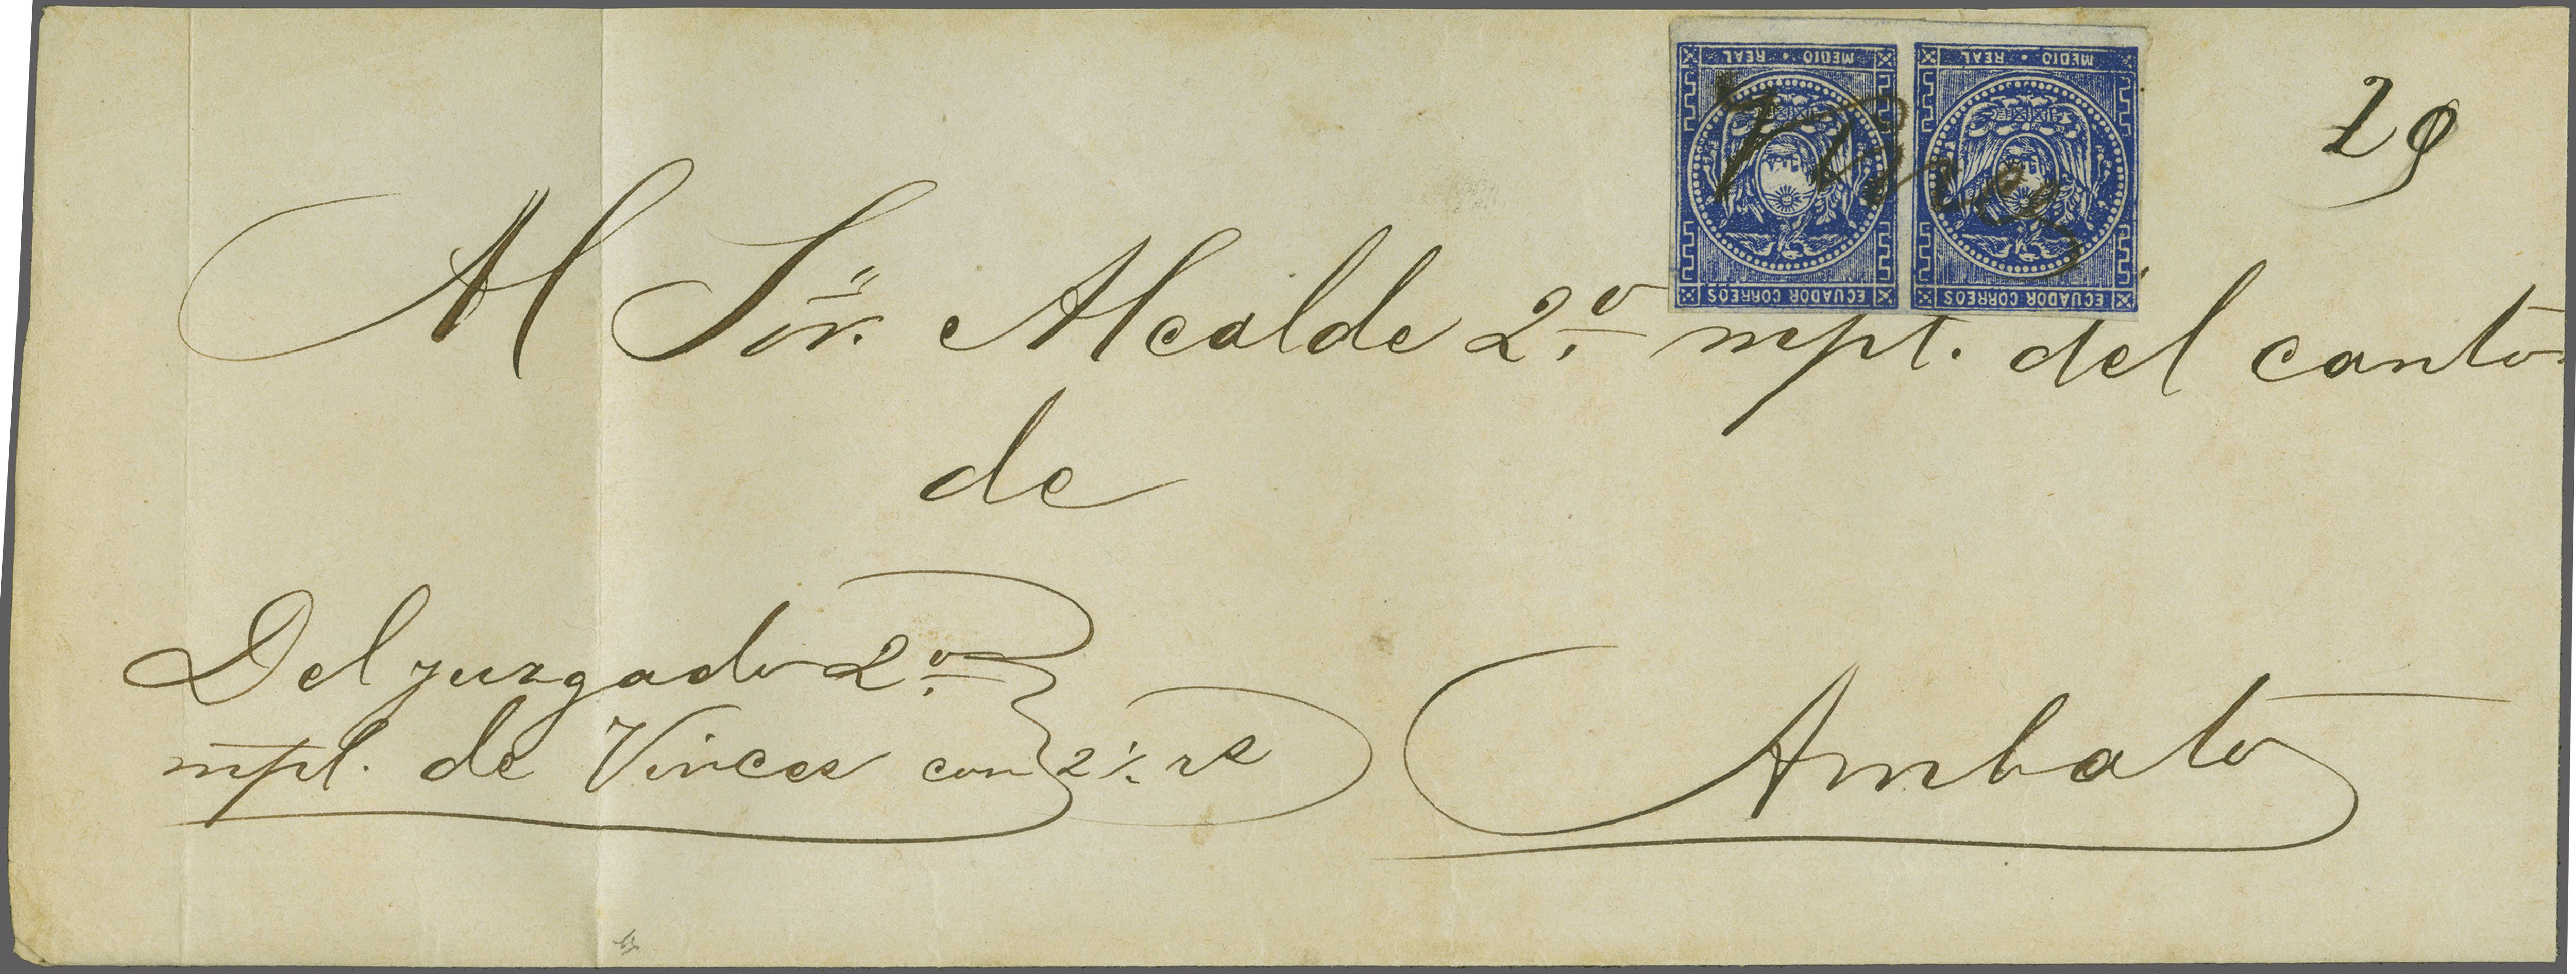 MEDIO • REAL MEDIO • REAL
Vinces
ECUADOR CORREOS ECUADOR CORREOS
Al Sōr. Alcalde 2.º mpl. del canton
de
Ambato
Del juzgado 2.º
mpl. de Vinces con 2½ rs